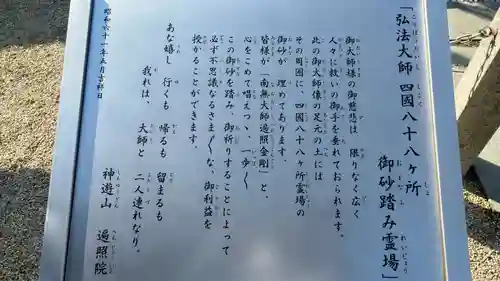 「弘法大師 四國八十八ヶ所
御砂踏み霊場」
御大師様の御慈悲は 限りなく広く
人々に救いの御手を垂れておられます。
此の御大師像の足元の土には
その周囲に、四國八十八ヶ所霊場の
御砂が 埋めてあります。
皆様が「南無大師遍照金剛」と、
心をこめて唱えつゝ、一歩〱
この御砂を踏み、御祈りすることによって
必ず不思議なるさま〲な、御利益を
授かることができます。
あな嬉し 行くも 帰るも 留まるも
我れは、 大師と 二人連れなり。
神遊山 遍照院
昭和六十一年五月吉祥日